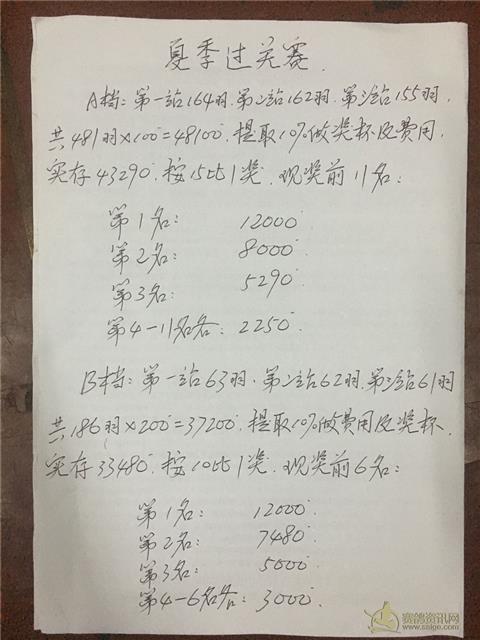 夏季过关赛.
A档: 第一站164羽. 第二站162羽. 第三站155羽.
共481羽×100=48100. 提取10%做奖杯及费用.
实存43290. 按15比1奖. 现奖前11名:
第1名: 12000
第2名: 8000
第3名: 5290
第4-11名各: 2250
B档: 第一站63羽. 第二站62羽. 第三站61羽
共186羽×200=37200. 提取10%做费用及奖杯.
实存33480. 按10比1奖. 现奖前6名:
第1名: 12000
第2名: 7480
第3名: 5000
第4-6名各: 3000.
赛鸽资讯网
www.saige.com